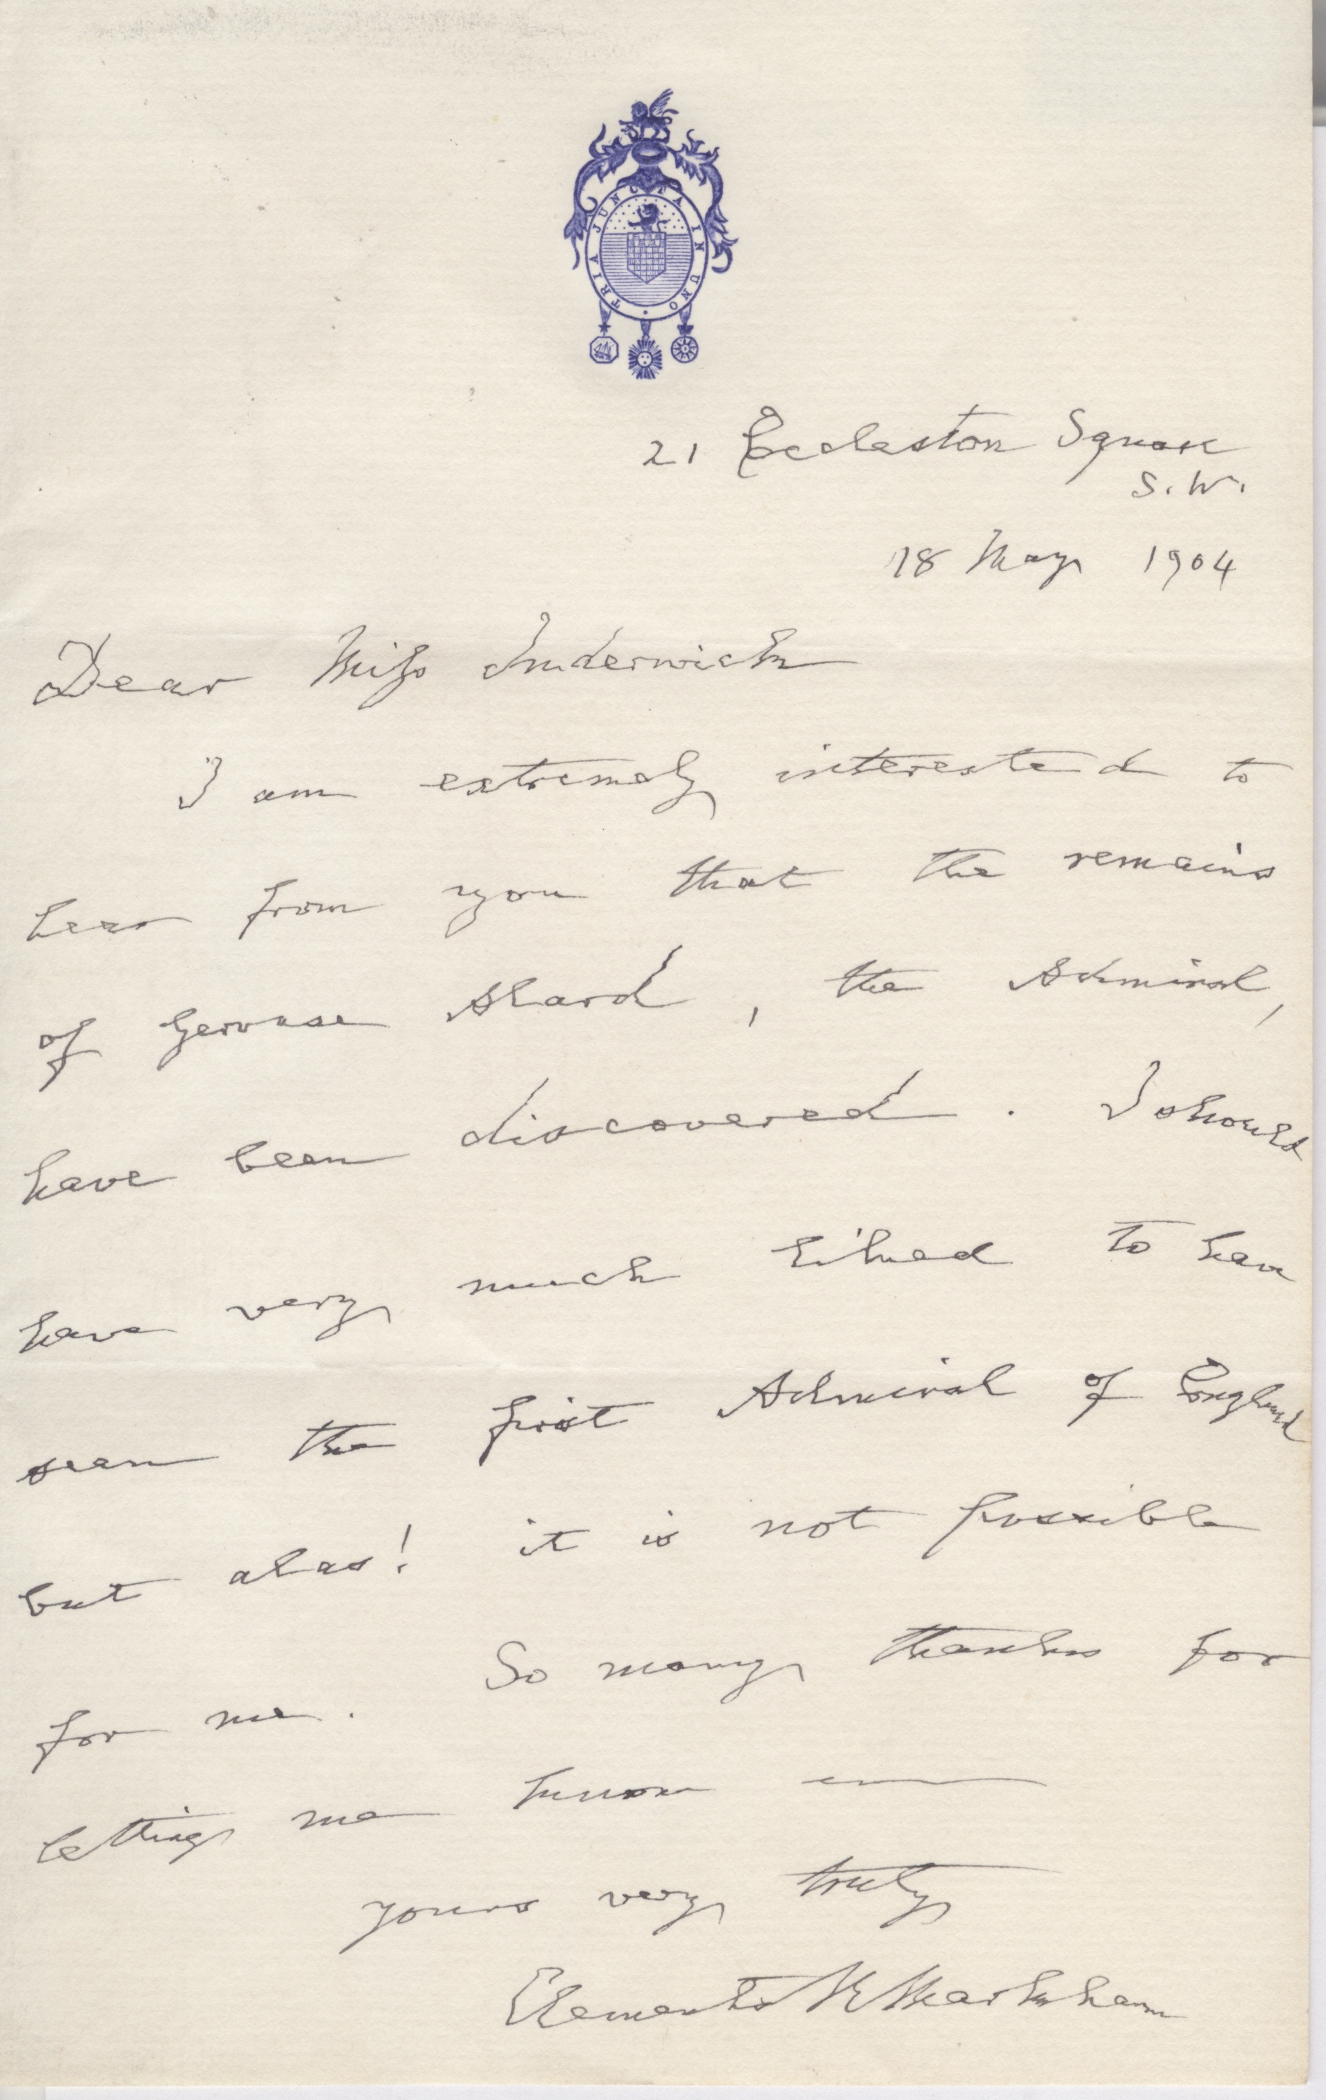 TRIA JUNCTA IN UNO
21 Eccleston Square
S.W.
18 May 1904
Dear Miss Inderwick
I am extremely interested to
hear from you that the remains
of Gervase Alard, the Admiral,
have been discovered. I should
have very much liked to have
seen the first Admiral of England
but alas! it is not possible
for me. So many thanks for
letting me know —
yours very truly
Clements R Markham